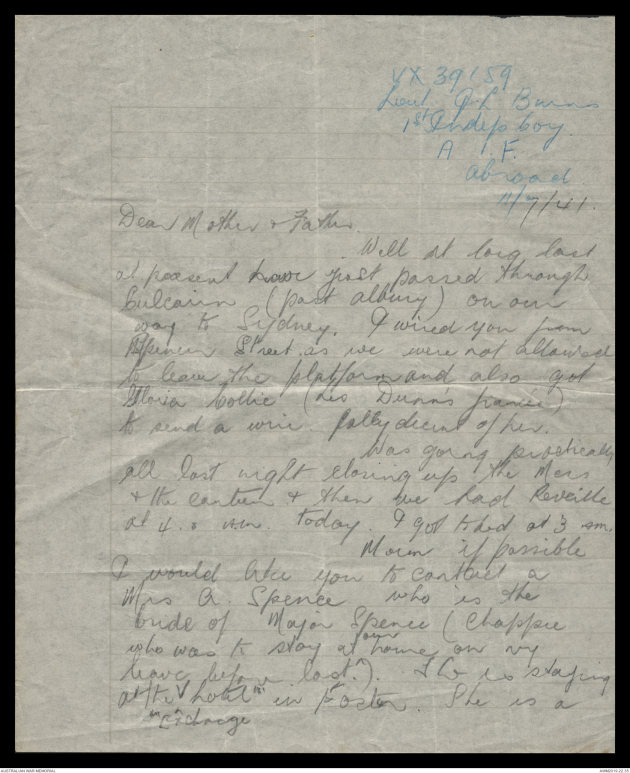 VX 39159
Lieut. J L Burns
1st Indep Coy.
A I.F.
abroad
11/7/41.
Dear Mother & Father.
Well at long last
at present have just passed through
Culcairn (past albury) on our
way to Sydney. I wired you from
Spencer Street as we were not allowed
to leave the platform and also got
Gloria Collie (Les Dunn's fiancée)
to send a wire. Jolly decent of her.
Was going practically
all last night closing up the Mess
& the canteen & then we had Reveille
at 4.0 am. today. I got to bed at 3 am.
Mum if possible
I would like you to contact a
Mrs A. Spence who is the
bride of Major Spence (Chappie
who was to stay at our home on my
leave before last.). She is staying
at the hotel in Foster. She is a
"Exchange"
AUSTRALIAN WAR MEMORIAL